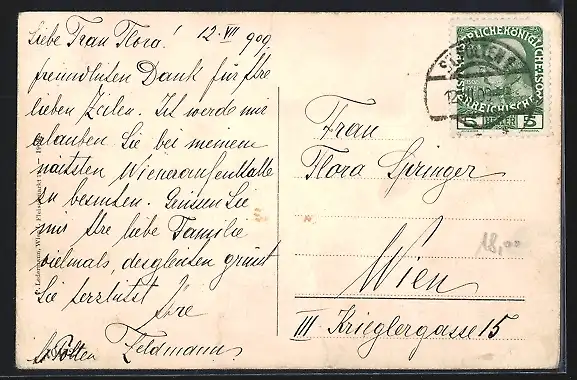 Liebe Frau Flora! 12. VII 909.
freundlichsten Dank für Ihre
lieben Zeilen. Ich werde mir
erlauben Sie bei meinem
nächsten Wieneraufenthalte
zu besuchen. Grüssen Sie
mir Ihre liebe Familie
vielmals, desgleichen grüsst
Sie herzlichst Ihre
Feldmann
St. Pölten
Frau
Flora Springer
Wien
III Krieglergasse 15
18,00
5 HELLER 5
Ledermann, Wien I., Fleischmarkt